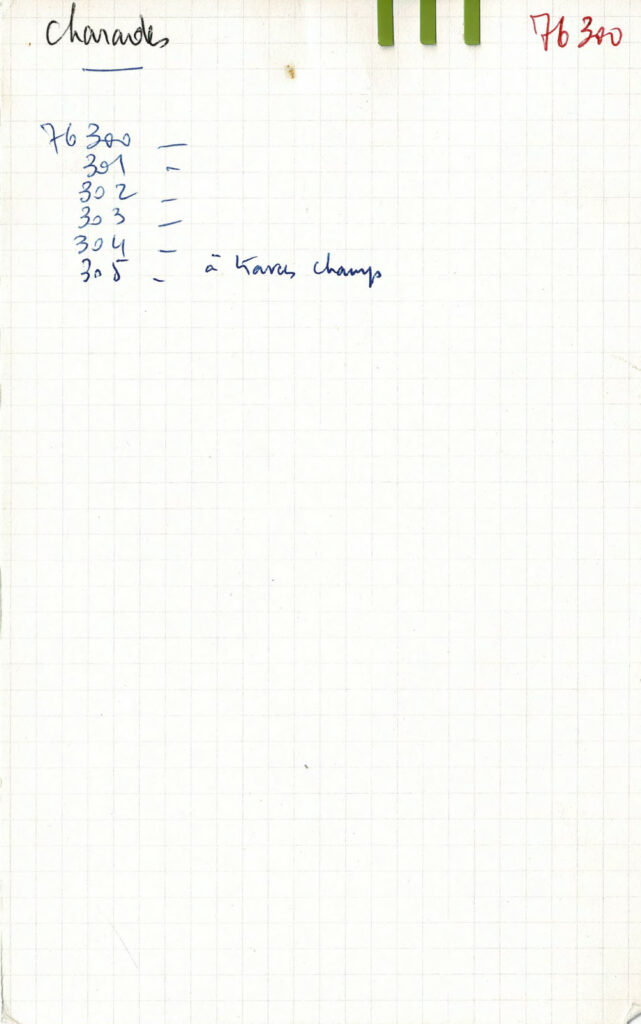 Charades
76 300
76 300 —
301 -
302 -
303 —
304 -
305 - à travers champs